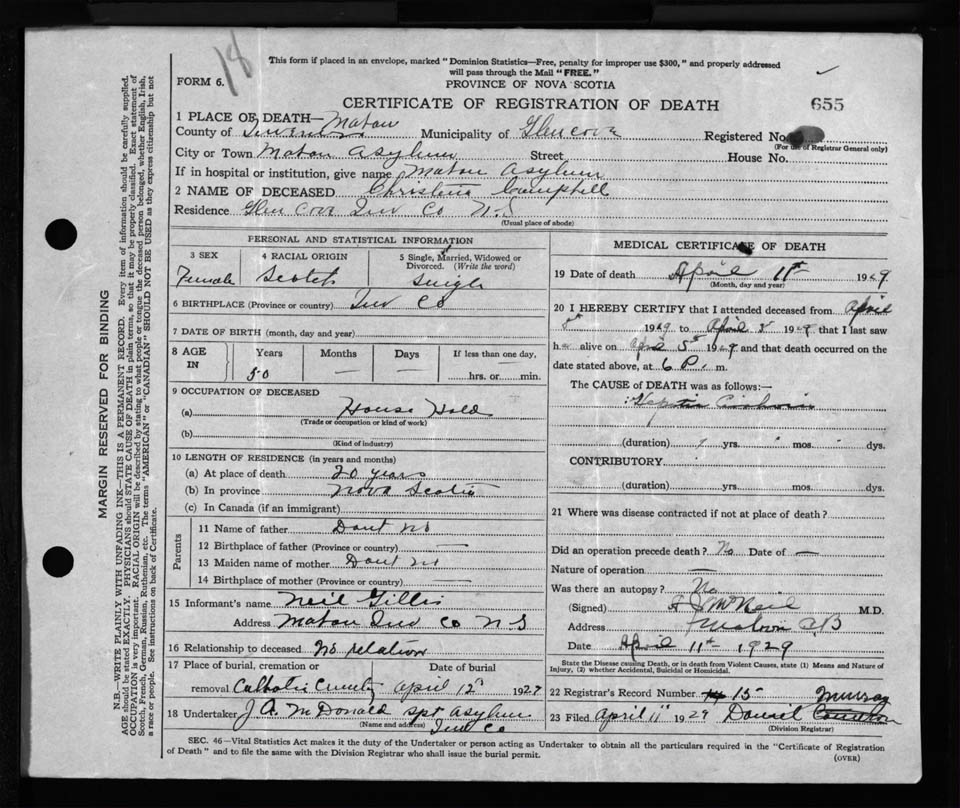 18
This form if placed in an envelope, marked "Dominion Statistics—Free, penalty for improper use $300," and properly addressed
will pass through the Mail "FREE."
FORM 6.
PROVINCE OF NOVA SCOTIA
CERTIFICATE OF REGISTRATION OF DEATH
655
1 PLACE OF DEATH— Mabou
County of Inverness Municipality of Glencoe Registered No.
(For use of Registrar General only)
City or Town Mabou Asylum Street House No.
If in hospital or institution, give name Mabou Asylum
2 NAME OF DECEASED Christina Campbell
Residence Glen Coe Inv Co N.S
(Usual place of abode)
PERSONAL AND STATISTICAL INFORMATION
3 SEX 4 RACIAL ORIGIN 5 Single, Married, Widowed or Divorced. (Write the word)
Female Scotch Single
6 BIRTHPLACE (Province or country) Inv Co
7 DATE OF BIRTH (month, day and year)
8 AGE IN Years Months Days If less than one day,
50 — — hrs. or min.
9 OCCUPATION OF DECEASED
(a) House Hold
(Trade or occupation or kind of work)
(b)
(Kind of industry)
10 LENGTH OF RESIDENCE (in years and months)
(a) At place of death 20 years
(b) In province Nova Scotia
(c) In Canada (if an immigrant)
Parents
11 Name of father Dont no
12 Birthplace of father (Province or country) —
13 Maiden name of mother Dont no
14 Birthplace of mother (Province or country) —
15 Informant's name Neil Gillis
Address Mabou Inv Co N S
16 Relationship to deceased no relation
17 Place of burial, cremation or Date of burial
removal Catholic April 12 1929
18 Undertaker J A McDonald spt Asylum
(Name and address) Inv Co
MEDICAL CERTIFICATE OF DEATH
19 Date of death April 11th 1929
(Month, day and year)
20 I HEREBY CERTIFY that I attended deceased from April
1929 to April 1929, that I last saw
h alive on April 5th 1929 and that death occurred on the
date stated above, at 6 P. m.
The CAUSE of DEATH was as follows:—
Hepatic Cirrhosis
(duration) yrs. mos. dys.
CONTRIBUTORY
(duration) yrs. mos. dys.
21 Where was disease contracted if not at place of death?
Did an operation precede death? No Date of —
Nature of operation —
Was there an autopsy? No
(Signed) McNeil M.D.
Address Mabou C.B
Date April 11th 1929
State the Disease causing Death, or in death from Violent Causes, state (1) Means and Nature of
Injury, (2) whether Accidental, Suicidal or Homicidal.
22 Registrar's Record Number 15 Murray
23 Filed April 11 1929 Daniel Cameron
(Division Registrar)
SEC. 46—Vital Statistics Act makes it the duty of the Undertaker or person acting as Undertaker to obtain all the particulars required in the "Certificate of Registration
of Death" and to file the same with the Division Registrar who shall issue the burial permit.
(OVER)
MARGIN RESERVED FOR BINDING
N.B.—WRITE PLAINLY WITH UNFADING INK—THIS IS A PERMANENT RECORD. Every item of information should be carefully supplied.
AGE should be stated EXACTLY. PHYSICIANS should STATE CAUSE OF DEATH in plain terms, so that it may be properly classified. Exact statement of
OCCUPATION is very important. RACIAL ORIGIN will be described by stating to what people or tongue the deceased person belonged, whether English, Irish,
Scotch, French, German, Russian, Ruthenian, etc. The terms "AMERICAN" or "CANADIAN" SHOULD NOT BE USED as they express citizenship but not
a race or people. See instructions on back of Certificate.